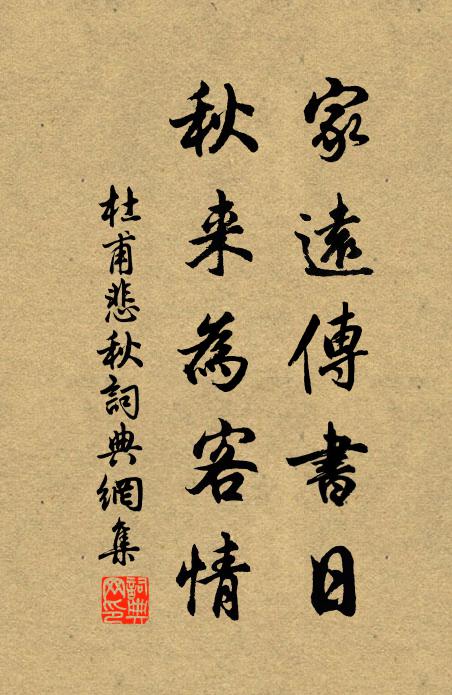 家遠傳書日
秋来為客情
杜甫悲秋詞典網集
詞典网印